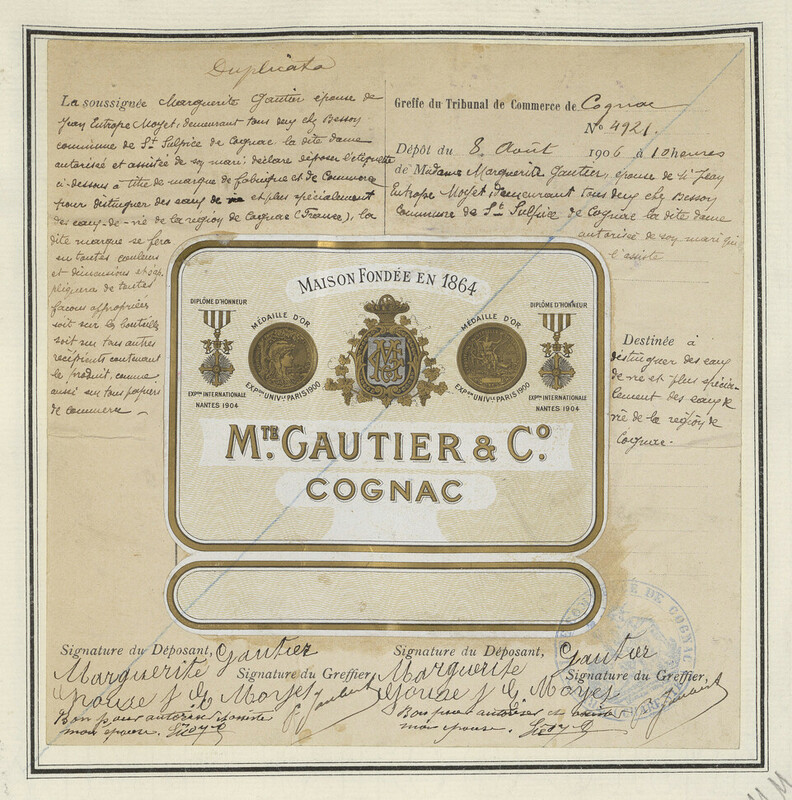 Duplicata
La soussignée Marguerite Gautier épouse de
Jean Eutrope Moyet, demeurant tous deux chez Besson
commune de St. Sulpice de Cognac la dite dame
autorisée et assistée de son mari déclare déposer l'étiquette
ci-dessus à titre de marque de fabrique et de commerce
pour distinguer des eaux de vie et plus spécialement
des eaux-de-vie de la région de Cognac (France), la
dite marque se fera
en toutes couleurs
et dimensions et s'ap-
pliquera de toutes
façons appropriées
soit sur les bouteilles
soit sur tous autres
récipients contenant
le produit, comme
aussi sur tous papiers
de commerce
Greffe du Tribunal de Commerce de Cognac
No 4921.
Dépôt du 8 Août 1906 à 10 heures
de Madame Marguerite Gautier, épouse de Jean
Eutrope Moyet, demeurant tous deux chez Besson
commune de St. Sulpice de Cognac la dite dame
autorisée de son mari qui
l'assiste
MAISON FONDÉE EN 1864
DIPLÔME D'HONNEUR
EXPON INTERNATIONALE
NANTES 1904
MÉDAILLE D'OR
EXPON UNIVLLE PARIS 1900
MÉDAILLE D'OR
EXPON UNIVLLE PARIS 1900
DIPLÔME D'HONNEUR
EXPON INTERNATIONALE
NANTES 1904
MTE. GAUTIER & CO.
COGNAC
Destinée à
distinguer des eaux
de vie et plus spécia-
lement des eaux de
vie de la région de
Cognac.
Signature du Déposant, Gautier
Marguerite Signature du Greffier,
épouse J. E. Moyet
Bon pour autoriser et assister
mon épouse.
Signature du Déposant, Gautier
Marguerite Signature du Greffier,
épouse J. E. Moyet
Bon pour autoriser et assister
mon épouse.
DE COGNAC